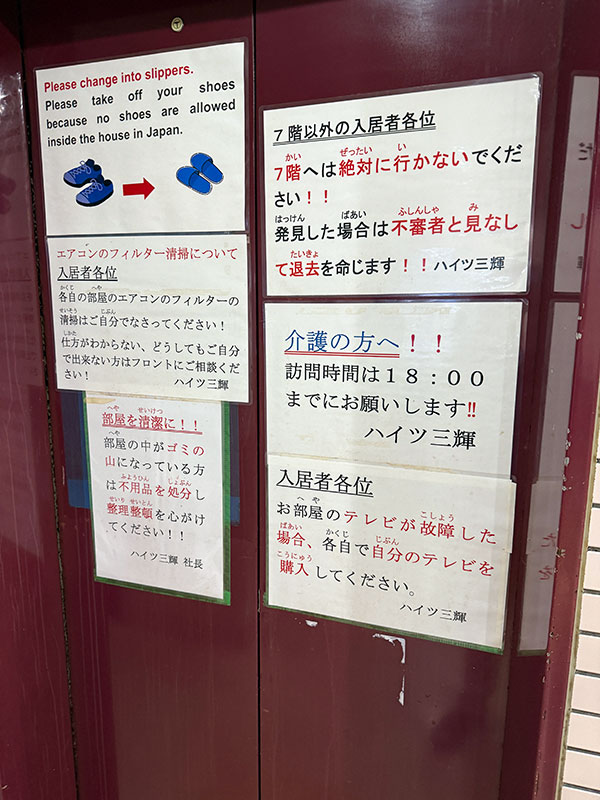 Please change into slippers.
Please take off your shoes
because no shoes are allowed
inside the house in Japan.
エアコンのフィルター清掃について
入居者各位
かくじ へや
各自の部屋のエアコンのフィルターの
せいそう じぶん
清掃はご自分でなさってください！
しかた
仕方がわからない、どうしてもご自分
で出来ない方はフロントにご相談くだ
さい！ ハイツ三輝
へや せいけつ
部屋を清潔に！！
へや
部屋の中がゴミの
山になっている方
ふようひん しょぶん
は不用品を処分し
せいり せいとん
整理整頓を心がけ
てください！！
ハイツ三輝 社長
７階以外の入居者各位
かい ぜったい い
７階へは絶対に行かないでくだ
さい！！
はっけん ばあい ふしんしゃ み
発見した場合は不審者と見なし
たいきょ
て退去を命じます！！ハイツ三輝
介護の方へ！！
訪問時間は１８：００
までにお願いします‼
ハイツ三輝
入居者各位
へや こしよう
お部屋のテレビが故障した
ばあい かくじ じぶん
場合、各自で自分のテレビを
こうにゅう
購入してください。
ハイツ三輝